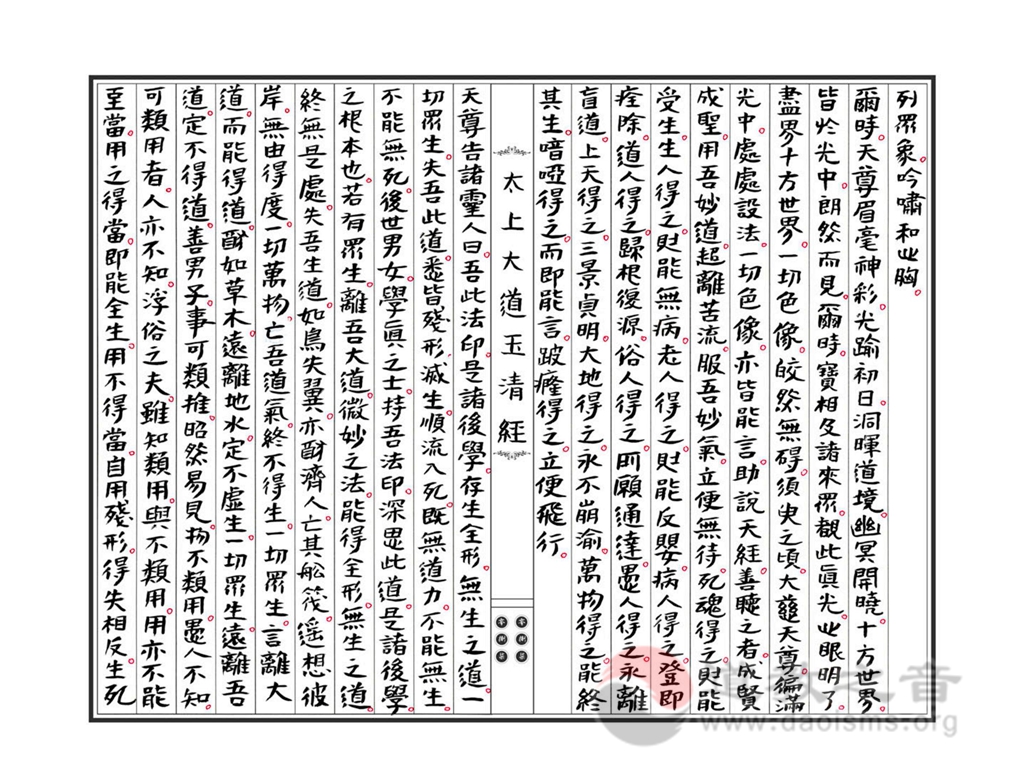 列眾象吟嘯和心胸
爾時天尊眉毫神彩光踰初日洞暉道境幽冥開曉十方世界
皆於光中朗然而見爾時寶相及諸來眾觀此真光心眼明了
盡界十方世界一切色像皎然無碍須臾之頃大慈天尊徧滿
光中處處設法一切色像亦皆能言助說天經善聽之者成賢
成聖用吾妙道超離苦流服吾妙氣立便無待死魂得之則能
受生生人得之則能無病老人得之則能反嬰病人得之登即
痊除道人得之歸根復源俗人得之所願通達愚人得之永離
盲道上天得之三景貞明大地得之永不崩淪萬物得之能終
其生喑啞得之而即能言跛癃得之立便飛行
太上大道玉清經
天尊告諸靈人曰吾此法印是諸後學存生全形無生之道一
切眾生失吾此道悉皆殘形滅生順流入死既無道力不能無生
不能無死後世男女學真之士持吾法印深思此道是諸後學
之根本也若有眾生離吾大道微妙之法能得全形無生之道
終無是處失吾生道如鳥失翼亦酬濟人亡其舩筏遥想彼
岸無由得度一切萬物亡吾道氣終不得生一切眾生言離大
道而能得道酬如草木遠離地水定不虛生一切眾生遠離吾
道定不得道善男子事可類推昭然易見物不類用愚人不知
可類用者人亦不知浮俗之夫雖知類用與不類用用亦不能
至當用之得當即能全生用不得當自用殘形得失相反生死
道教之音
www.daoisms.org